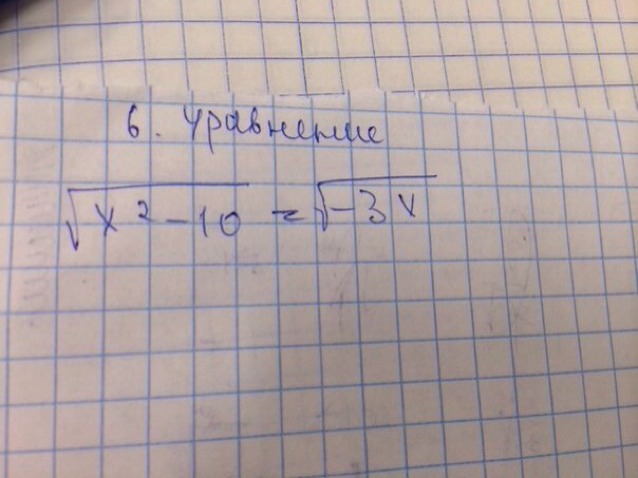 6. Уравнение
√x² - 10 = √-3x